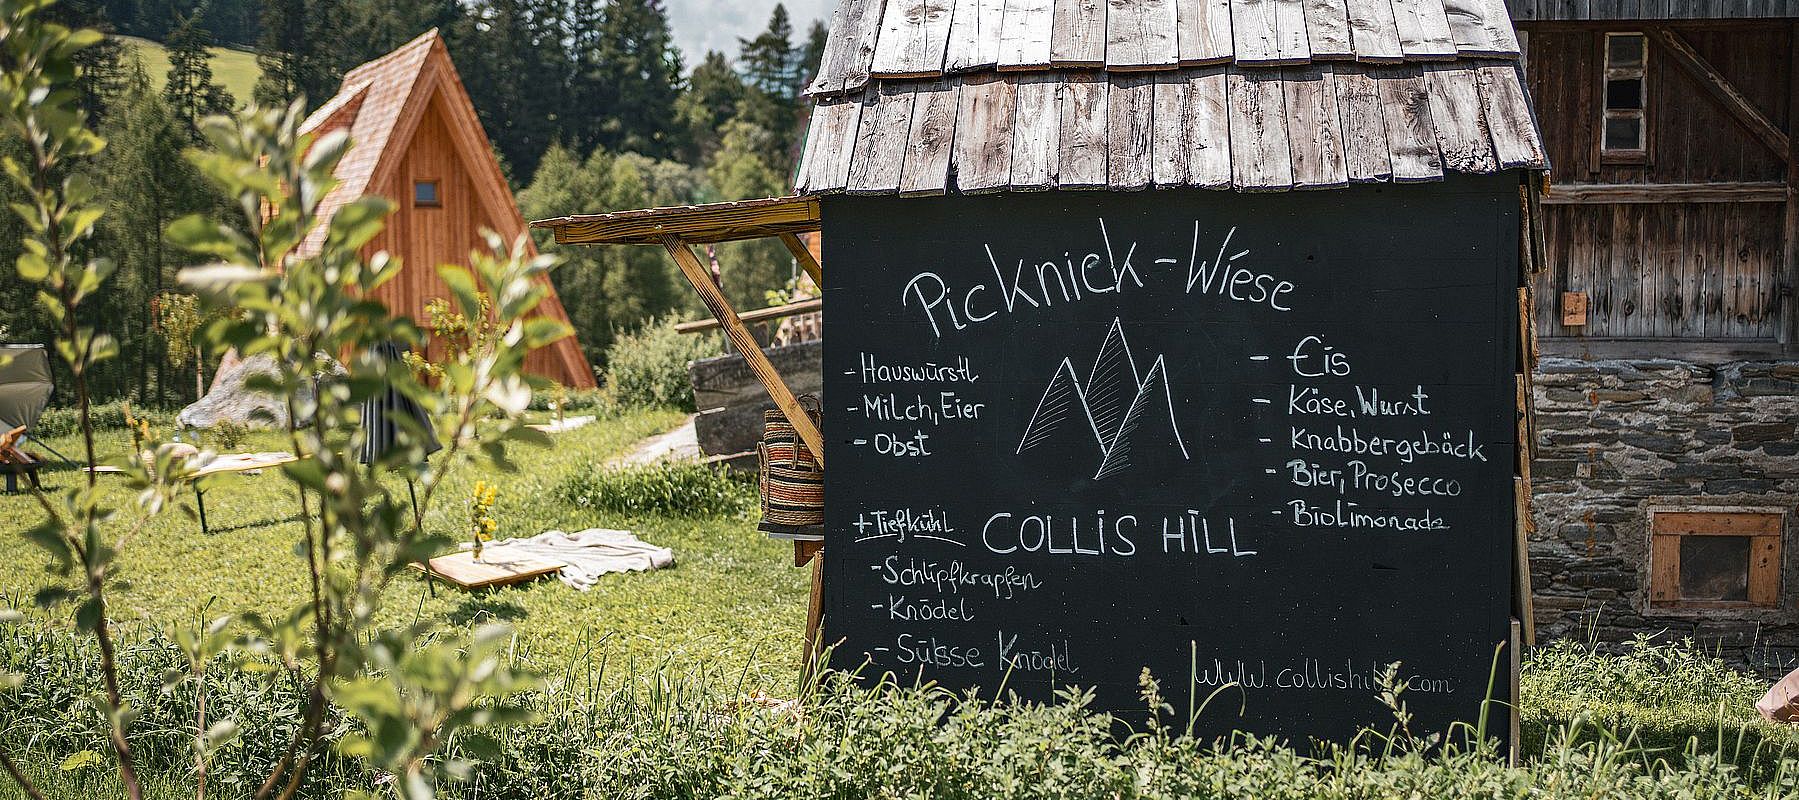 Picknick-Wiese
- Hauswürstl
- Milch, Eier
- Obst
- Eis
- Käse, Wurst
- Knabbergebäck
- Bier, Prosecco
- Biolimonade
COLLIS HILL
+ Tiefkühl
- Schlipfkrapfen
- Knödel
- Süsse Knödel
www.collishill.com